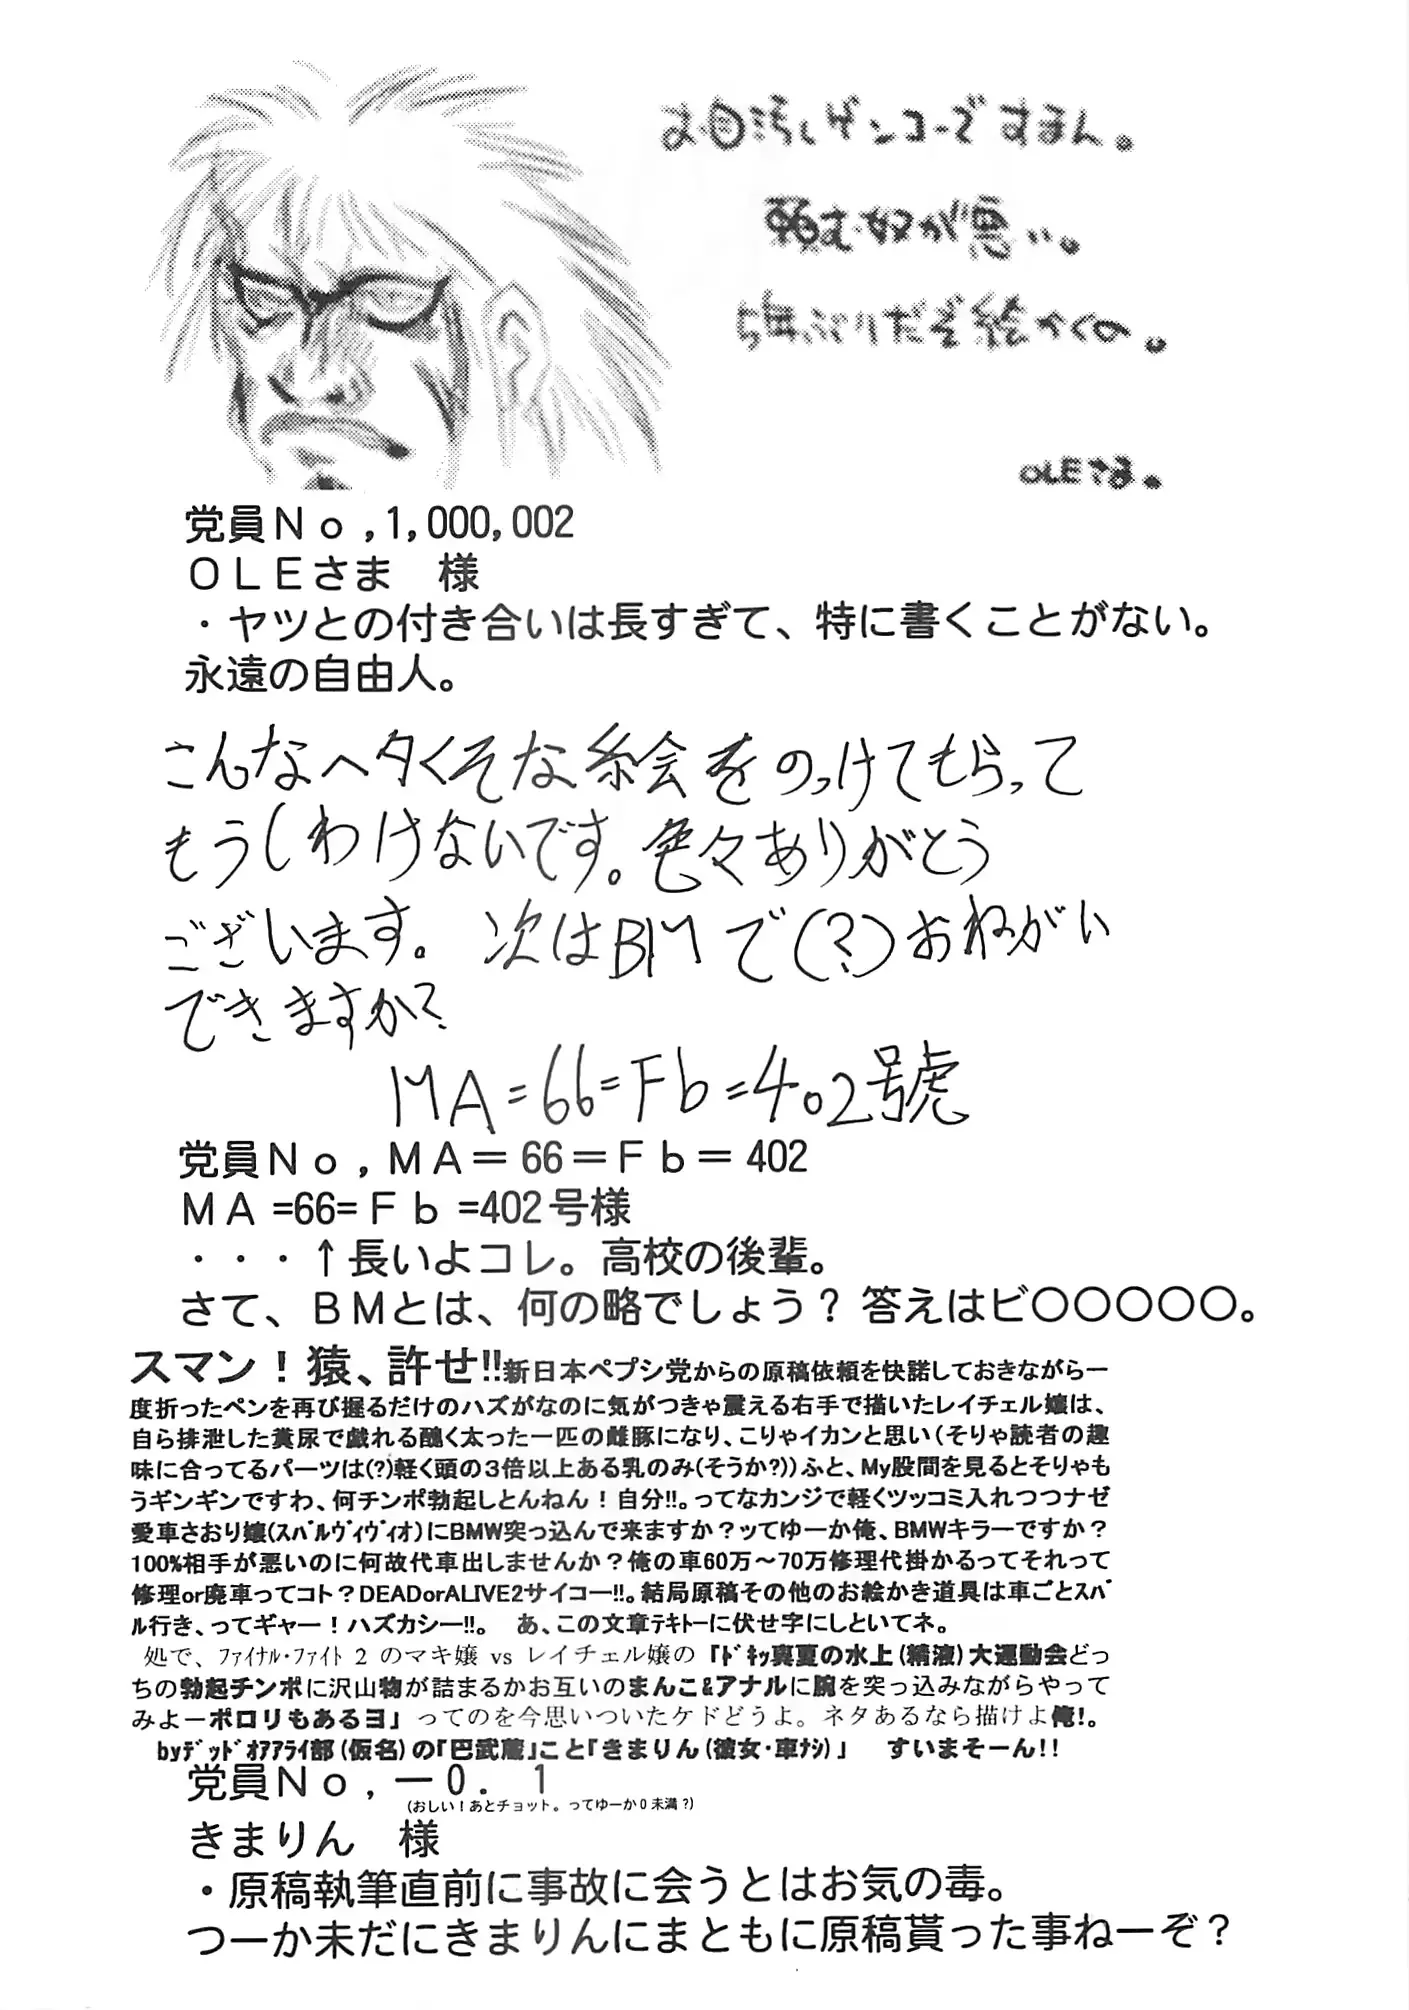 お目汚しゲンコーですまん。
頼む奴が悪い。
5年ぶりだぞ絵かくの。
OLEさま。
党員Ｎｏ,1,000,002
ＯＬＥさま　様
・ヤツとの付き合いは長すぎて、特に書くことがない。
永遠の自由人。
こんなヘタくそな絵をのっけてもらって
もうしわけないです。色々ありがとう
ございます。次はBMで(?)おねがい
できますか?
MA=66=Fb=402号虎
党員Ｎｏ,ＭＡ＝66＝Ｆｂ＝402
ＭＡ=66=Ｆｂ=402号様
・・・↑長いよコレ。高校の後輩。
さて、ＢＭとは、何の略でしょう？答えはビ〇〇〇〇〇。
スマン！猿、許せ!!新日本ペプシ党からの原稿依頼を快諾しておきながら一
度折ったペンを再び握るだけのハズがなのに気がつきゃ震える右手で描いたレイチェル嬢は、
自ら排泄した糞尿で戯れる醜く太った一匹の雌豚になり、こりゃイカンと思い(そりゃ読者の趣
味に合ってるパーツは(?)軽く頭の３倍以上ある乳のみ(そうか?))ふと、My股間を見るとそりゃも
うギンギンですわ、何チンポ勃起しとんねん！自分!!。ってなカンジで軽くツッコミ入れつつナゼ
愛車さおり嬢(ｽﾊﾞﾙヴｨヴｨオ)にBMW突っ込んで来ますか？ッてゆーか俺、BMWキラーですか？
100%相手が悪いのに何故代車出しませんか？俺の車60万～70万修理代掛かるってそれって
修理or廃車ってコト？DEADorALIVE2サイコー!!。結局原稿その他のお絵かき道具は車ごとｽﾊﾞ
ﾙ行き、ってギャー！ハズカシー!!。　あ、この文章ﾃｷﾄｰに伏せ字にしといてネ。
処で、ﾌｧｲﾅﾙ･ﾌｧｲﾄ 2 のマキ嬢 vs レイチェル嬢の「ﾄﾞｷｯ真夏の水上(精液)大運動会どっ
ちの勃起チンポに沢山物が詰まるかお互いのまんこ&アナルに腕を突っ込みながらやって
みよーポロリもあるヨ」ってのを今思いついたケドどうよ。ネタあるなら描けよ俺!。
byﾃﾞｯﾄﾞｵｱｱﾗｲ部(仮名)の「巴武蔵」こと「きまりん(彼女･車ﾅｼ)」　すいまそーん!!
党員Ｎｏ,－０．１
(おしい！あとチョット。ってゆーか０未満?)
きまりん　様
・原稿執筆直前に事故に会うとはお気の毒。
つーか未だにきまりんにまともに原稿貰った事ねーぞ？